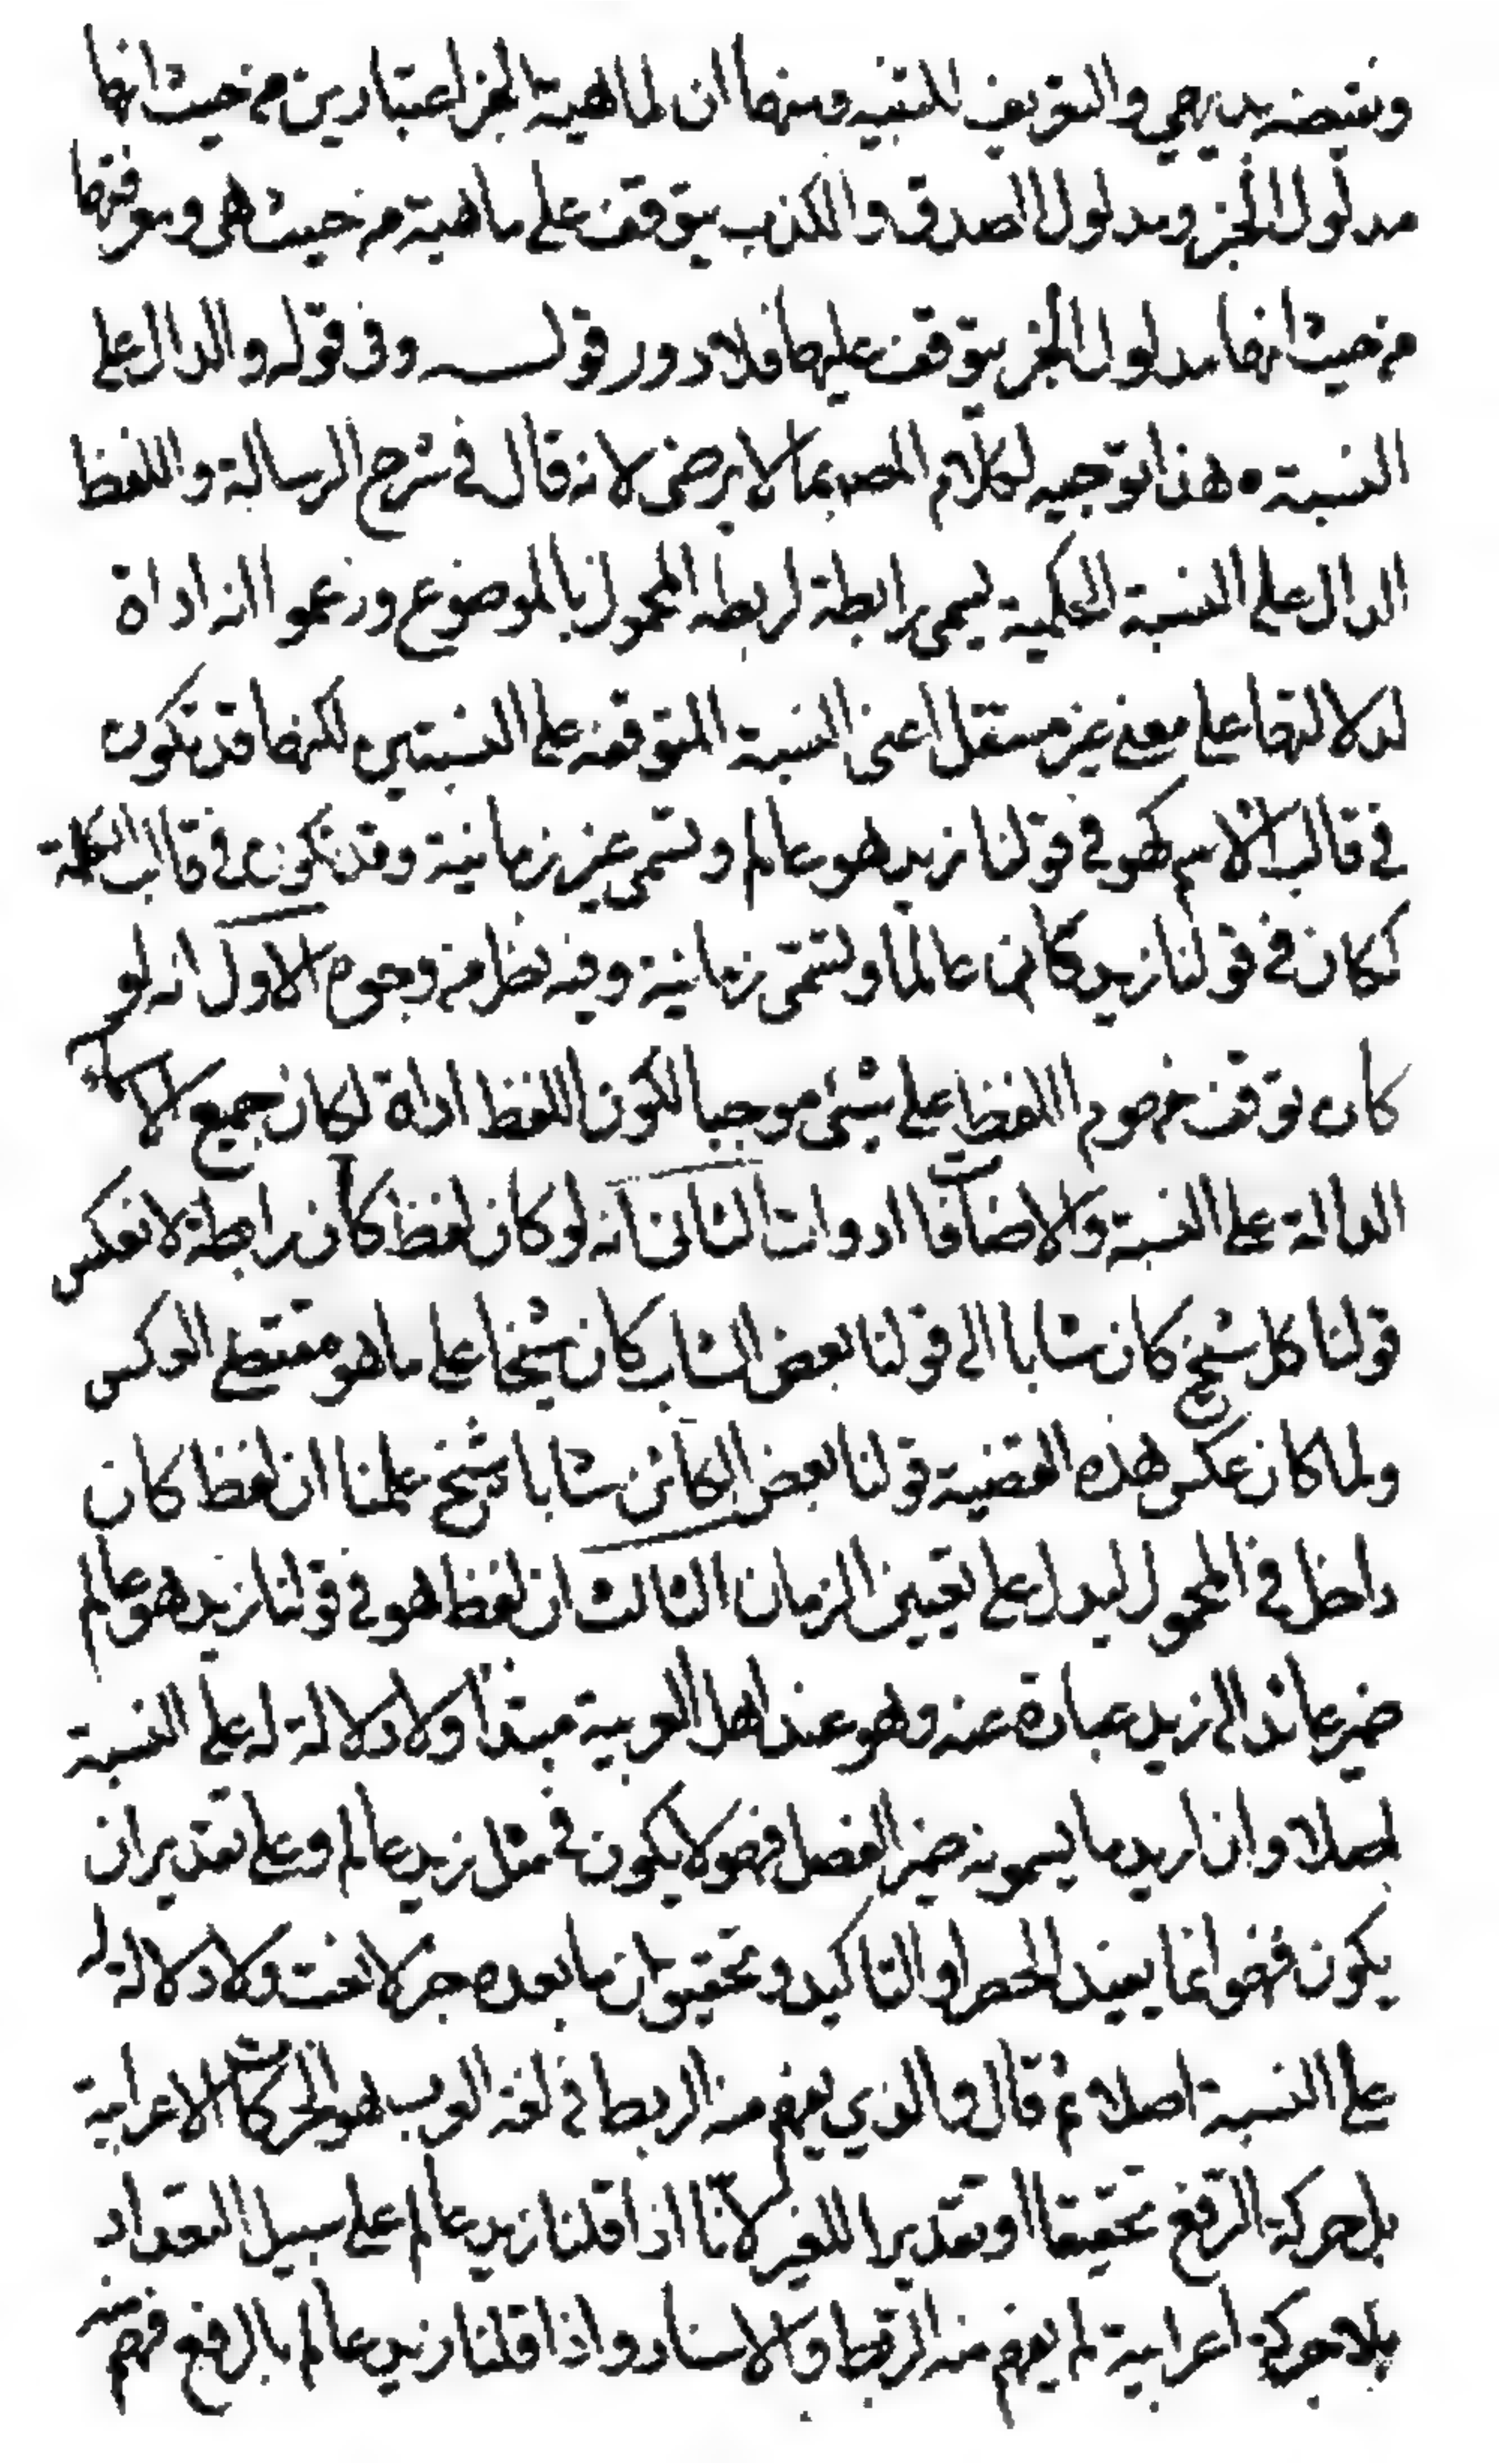 ونقيضه بديهي والتعريف للتنبيه ومنها ان لماهية الخبر اعتبارين من حيث انها
مدلول الخبر ومدلول الصدق والكذب يتوقف على ماهية من حيث هي ومعرفتها
من حيث انها مدلول الخبر يتوقف عليها فلا دور قولـــه وفى قوله والدال على
النسبة ٥ هذا توجيه لكلام المص بما لا يرضى لانه قال في شرح الرسالة واللفظ
الدال على النسبة الحكمية يسمى رابطة لربطه المحمول بالموضوع وزعموا انه اداة
لدلالتها على معنى غير مستقل اعنى النسبة المتوقفة على النسبتين لكنها قد تكون
في قالب الاسم كهو في قولنا زيد هو عالم وتسمى غير زمانية وقد تكون في قالب الكلمة
ككان في قولنا زيد كان عالما وتسمى زمانية وفيه نظر من وجوه الاول انه لو
كان توقف مفهوم اللفظ على شئ موجبا لكون اللفظ اداة لكان جميع الاسماء
الدالة على النسبة والاضافات ادوات الثانى انه لو كان لفظ كان رابطة لانعكس
قولنا كل شيخ كان شابا الى قولنا بعض الشاب كان شيخا على ما هو مقتضى العكس
ولما كان عكس هذه القضية قولنا بعض الكائن شابا شيخ علمنا ان لفظ كان
داخل في المحمول ليدل على تعيين الزمان الثالث ان لفظ هو في قولنا زيد هو عالم
ضمير عائد الى زيد عبارة عنه وهو عند اهل العربية مبتدأ ولا دلالة له على النسبة
اصلا وان اريد ما يسمونه ضمير الفصل فهو لا يكون في مثل زيد عالم وعلى تقدير ان
يكون فهو انما يفيد الحصر او التاكيد وتحقيق ان ما بعده خبر لا نعت ولا دلالة له
على النسبة اصلا ثم قال والذي يفهم منه الربط في لغة العرب هو الحركات الاعرابية
بل حركة الرفع تحقيقا او تقديرا للغير لانا اذا قلنا زيد عالم على سبيل التعداد
بلا حركة اعرابية لم يفهم منه الربط والاسناد واذا قلنا زيد عالم بالرفع فهم منه